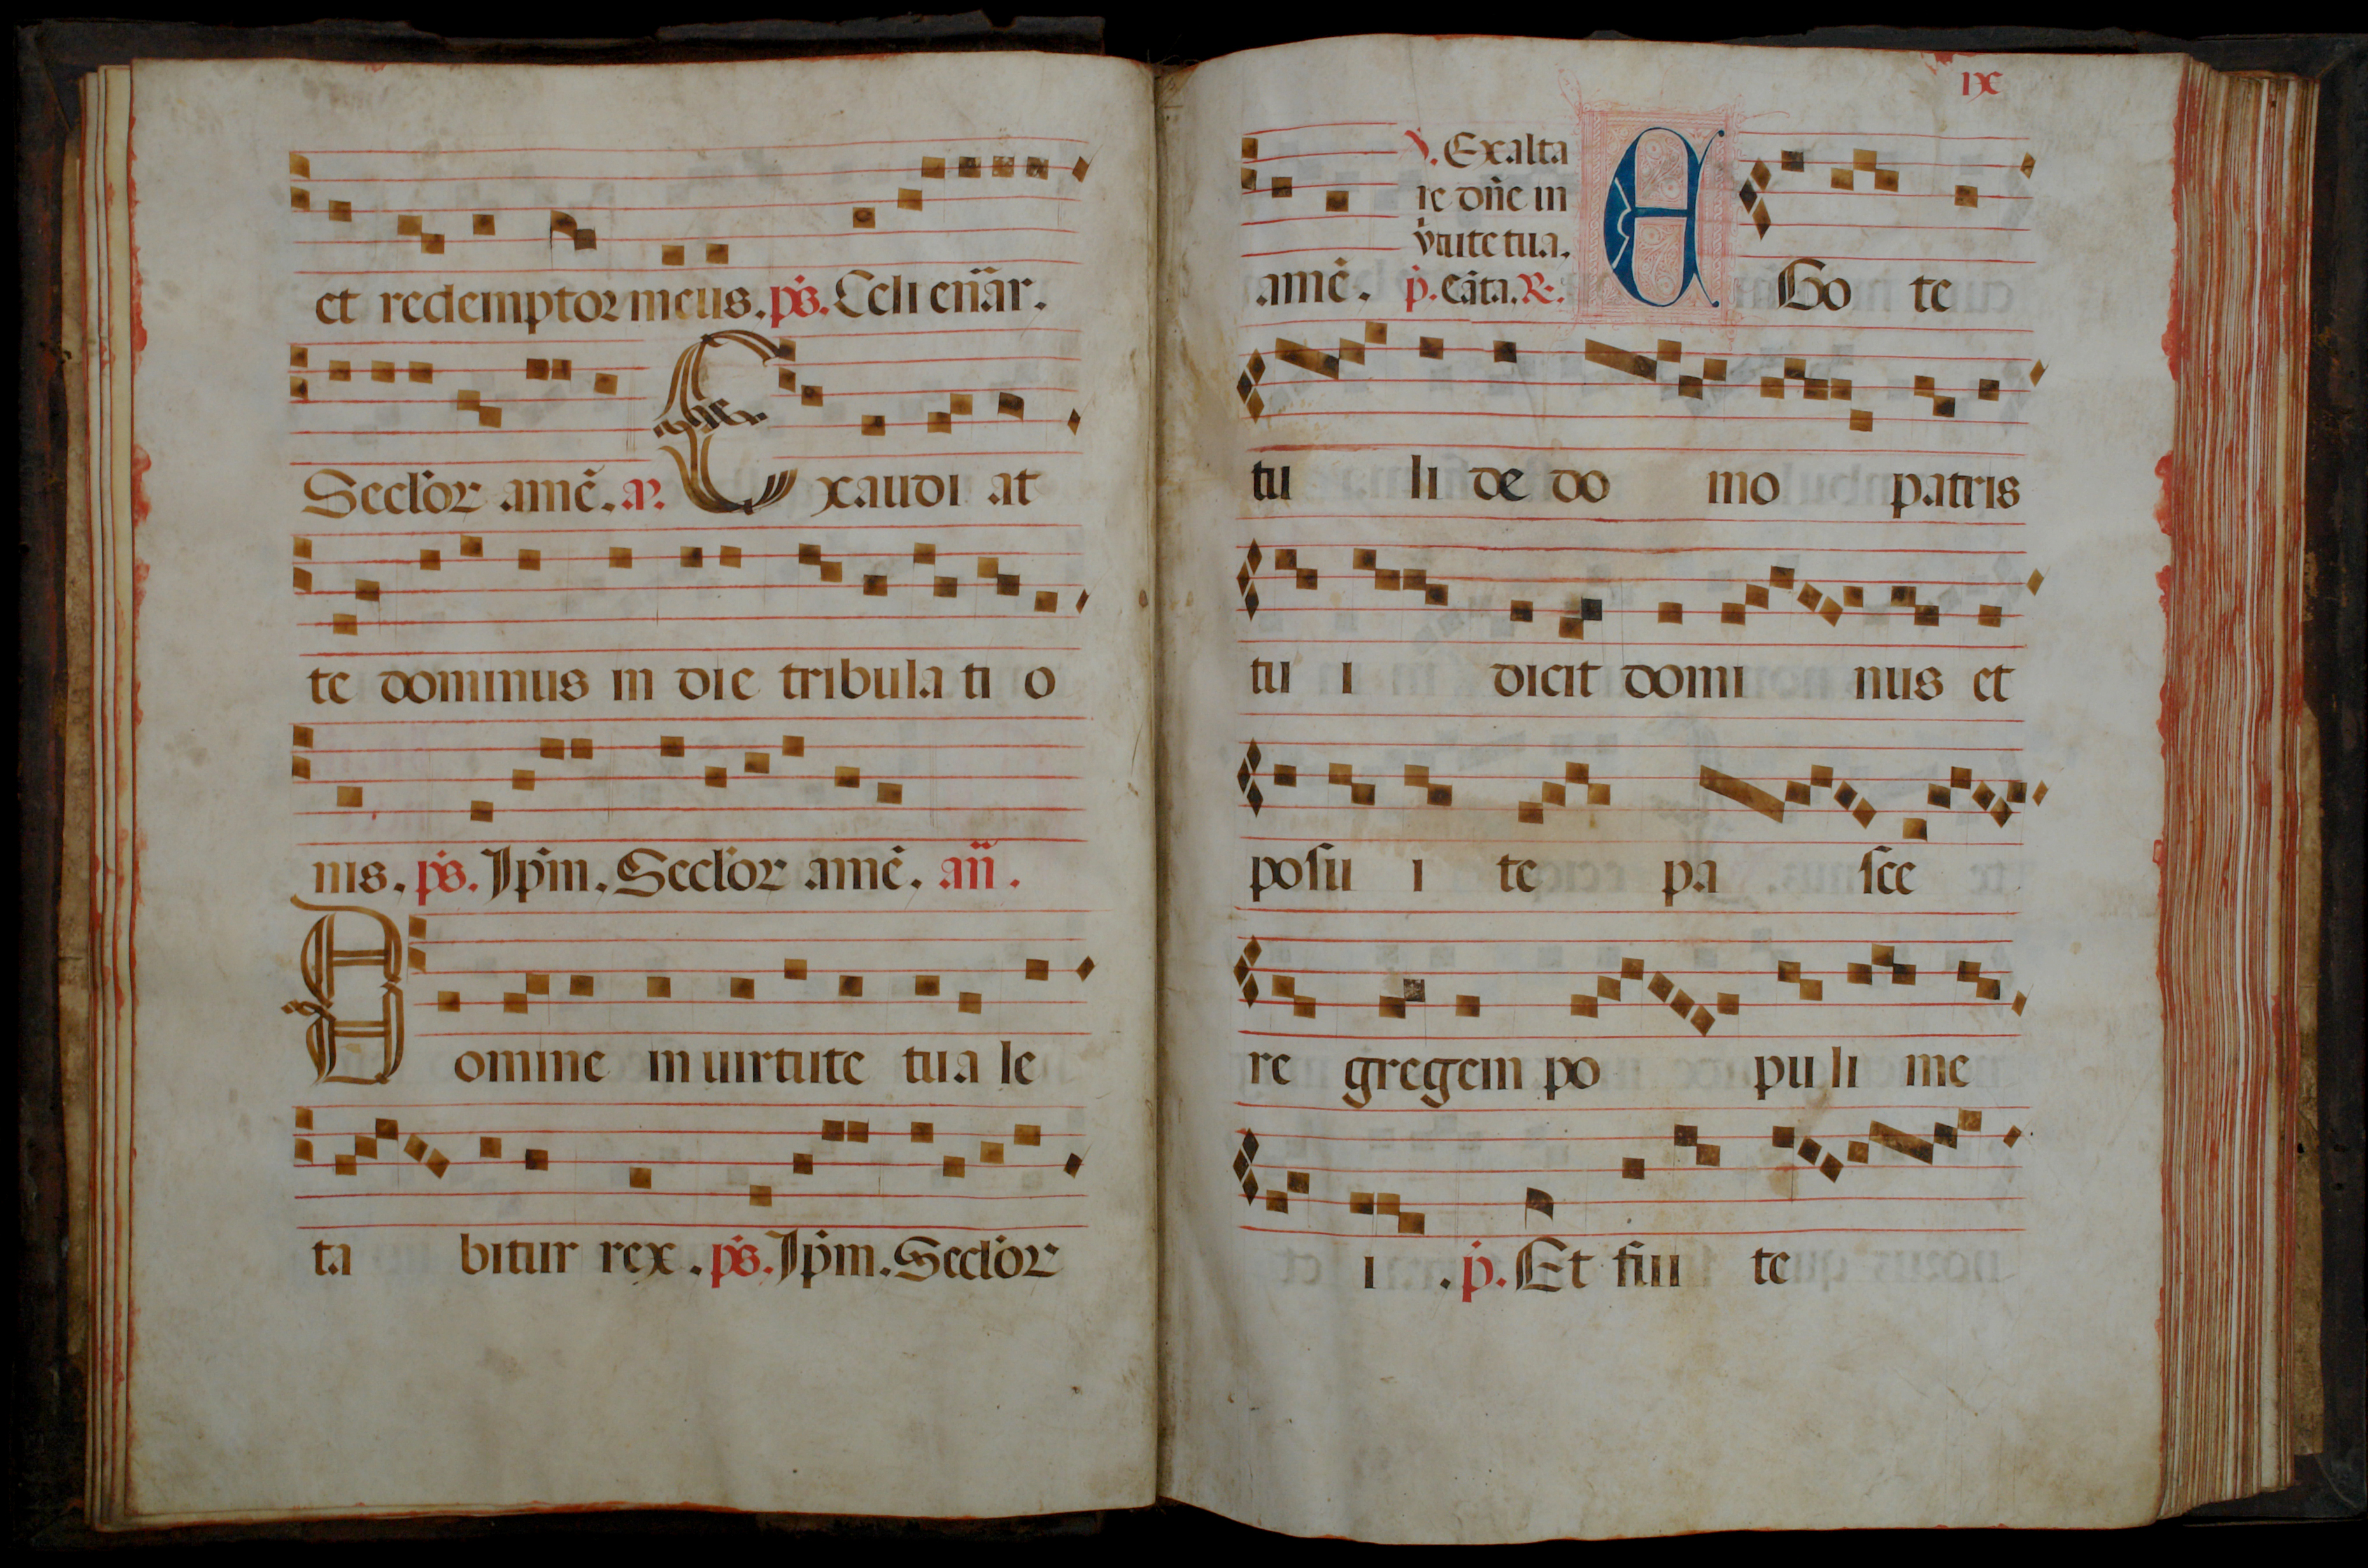 et redemptor meus. ps. Celi enār.
Seclor amē. an. Exaudi at
te dominus in die tribula ti o
nis. ps. Ipm. Seclor amē. añ.
Domine in uirtute tua le
ta bitur rex. ps. Ipm. Seclor
ix
℣. Exalta
re dñe in
v̾tute tua.
amē. p̄. Cāta. ℟. Ego te
tu li de do mo patris
tu i dicit domi nus et
posu i te pa sce
re gregem po pu li me
i . p̄. Et fui te